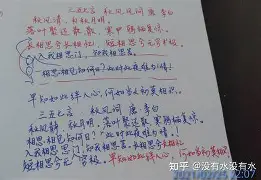 三五七言 秋风词 唐 李白
秋风清,秋月明,
落叶聚还散,寒鸦栖复惊。
长相思兮长相忆,短相思兮无穷极。
入我相思门,知我相思苦。
相思相见知何日?此时此夜难为情!
早知如此绊人心,何如当初莫相识。
三五七言 秋风词 唐 李白
秋风清,秋月明,落叶聚还散,寒鸦栖复惊。
相思相见知何日?此时此夜难为情!
入我相思门,知我相思苦,长相思兮长相忆,
短相思兮无穷极,早知如此绊人心,何如当初莫相识。
知乎 @没有水没有水
12:07